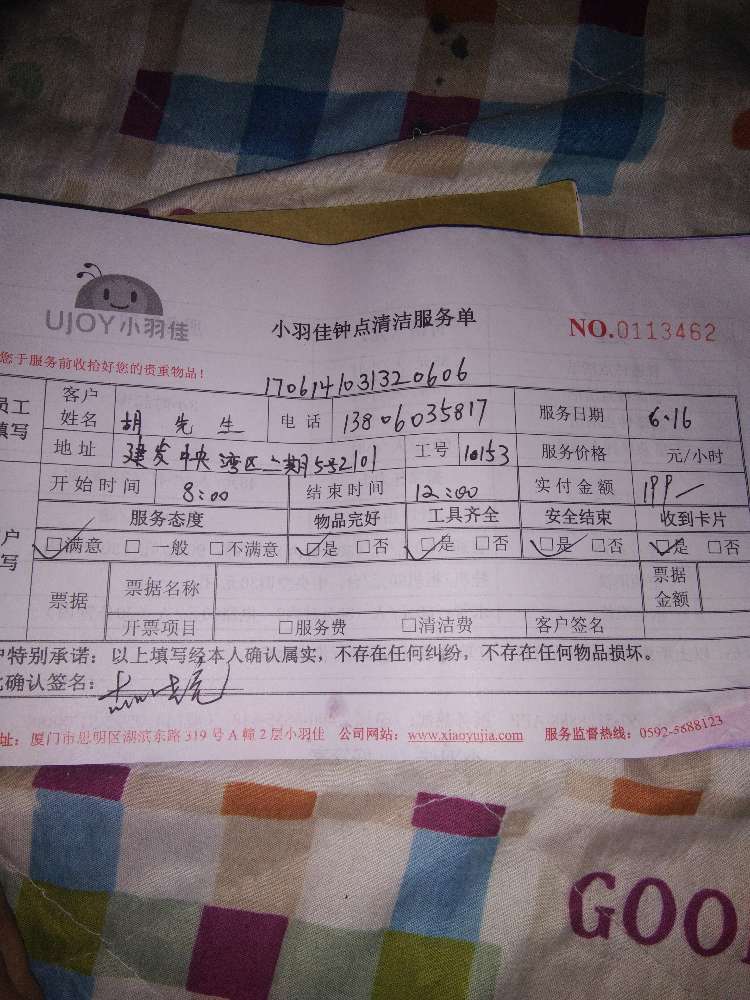 UJOY小羽佳
小羽佳钟点清洁服务单
NO.0113462
您于服务前收拾好您的贵重物品！
1706141031320606
员工填写
客户姓名 胡先生 电话 13806035817 服务日期 6.16
地址 建发中央湾区二期552101 工号 10153 服务价格 元/小时
开始时间 8:00 结束时间 12:00 实付金额 199/
服务态度 物品完好 工具齐全 安全结束 收到卡片
户写
☑满意 □一般 □不满意 ☑是 □否 ☑是 □否 ☑是 □否 ☑是 □否
票据 票据名称 票据金额
开票项目 □服务费 □清洁费 客户签名
户特别承诺：以上填写经本人确认属实，不存在任何纠纷，不存在任何物品损坏。
此确认签名：
址：厦门市思明区湖滨东路319号A幢2层小羽佳 公司网站：www.xiaoyujia.com 服务监督热线：0592-5688123
GOO